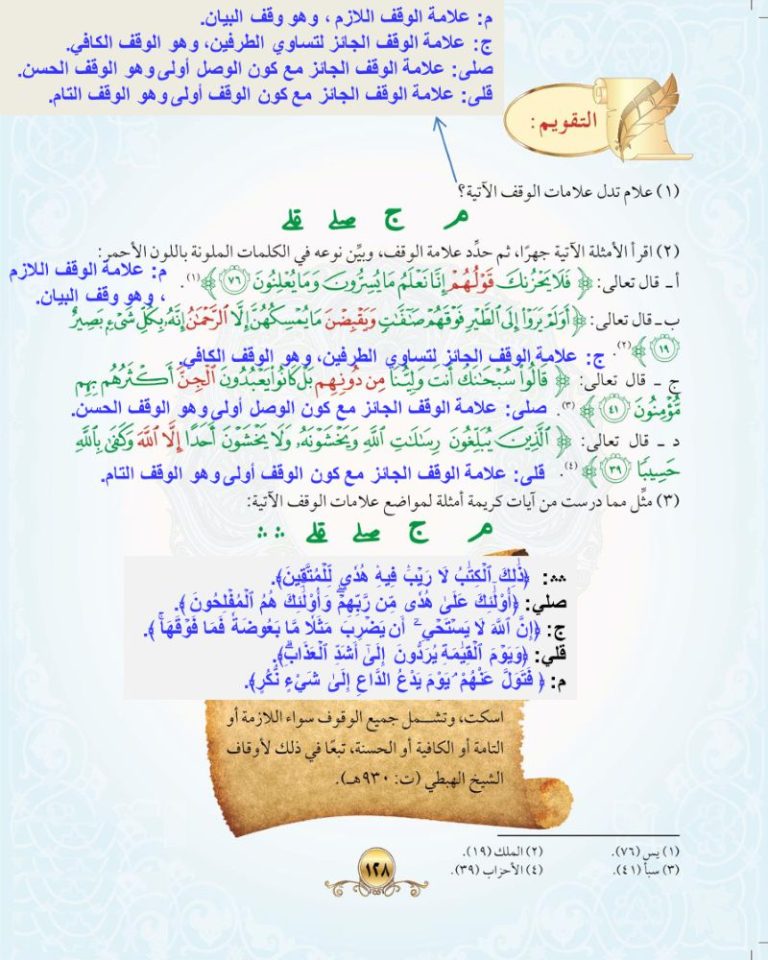 م: علامة الوقف اللازم ، وهو وقف البيان.
ج: علامة الوقف الجائز لتساوي الطرفين، وهو الوقف الكافي.
صلى: علامة الوقف الجائز مع كون الوصل أولى وهو الوقف الحسن.
قلى: علامة الوقف الجائز مع كون الوقف أولى وهو الوقف التام.
التقويم:
(١) علام تدل علامات الوقف الآتية؟
م ج صلے قلے
(٢) اقرأ الأمثلة الآتية جهرًا، ثم حدِّد علامة الوقف، وبيِّن نوعه في الكلمات الملونة باللون الأحمر:
م: علامة الوقف اللازم
، وهو وقف البيان.
أ- قال تعالى: ﴿ فَلَا يَحْزُنكَ قَوْلُهُمْ إِنَّا نَعْلَمُ مَا يُسِرُّونَ وَمَا يُعْلِنُونَ ٧٦ ﴾(١).
ب- قال تعالى: ﴿ أَوَلَمْ يَرَوْا إِلَى الطَّيْرِ فَوْقَهُمْ صَٰٓفَّٰتٍ وَيَقْبِضْنَ مَا يُمْسِكُهُنَّ إِلَّا الرَّحْمَٰنُ إِنَّهُ بِكُلِّ شَيْءٍ بَصِيرٌ
١٩ ﴾(٢).
ج: علامة الوقف الجائز لتساوي الطرفين، وهو الوقف الكافي.
ج - قال تعالى: ﴿ قَالُوا سُبْحَٰنَكَ أَنتَ وَلِيُّنَا مِن دُونِهِم بَلْ كَانُوا يَعْبُدُونَ الْجِنَّ أَكْثَرُهُم بِهِم
مُّؤْمِنُونَ ٤١ ﴾(٣).
صلى: علامة الوقف الجائز مع كون الوصل أولى وهو الوقف الحسن.
د - قال تعالى: ﴿ الَّذِينَ يُبَلِّغُونَ رِسَٰلَٰتِ اللَّهِ وَيَخْشَوْنَهُ وَلَا يَخْشَوْنَ أَحَدًا إِلَّا اللَّهَ وَكَفَىٰ بِاللَّهِ
حَسِيبًا ٣٩ ﴾(٤).
قلى: علامة الوقف الجائز مع كون الوقف أولى وهو الوقف التام.
(٣) مثِّل مما درست من آيات كريمة أمثلة لمواضع علامات الوقف الآتية:
م ج صلے قلے ∴ ∴
∴∴: ﴿ذَٰلِكَ ٱلْكِتَٰبُ لَا رَيْبَ ۛ فِيهِ ۛ هُدًى لِّلْمُتَّقِينَ﴾.
صلي: ﴿أُو۟لَٰٓئِكَ عَلَىٰ هُدًى مِّن رَّبِّهِمْ ۖ وَأُو۟لَٰٓئِكَ هُمُ ٱلْمُفْلِحُونَ ﴾.
ج: ﴿إِنَّ ٱللَّهَ لَا يَسْتَحْيِۦٓ أَن يَضْرِبَ مَثَلًا مَّا بَعُوضَةً فَمَا فَوْقَهَا ۚ ﴾.
قلي: ﴿وَيَوْمَ ٱلْقِيَٰمَةِ يُرَدُّونَ إِلَىٰٓ أَشَدِّ ٱلْعَذَابِ ۗ﴾.
م: ﴿ فَتَوَلَّ عَنْهُمْ ۘ يَوْمَ يَدْعُ ٱلدَّاعِ إِلَىٰ شَيْءٍ نُّكُرٍ﴾.
اسكت، وتشمل جميع الوقوف سواء اللازمة أو
التامة أو الكافية أو الحسنة، تبعًا في ذلك لأوقاف
الشيخ الهبطي (ت: ٩٣٠هـ).
(١) يس (٧٦). (٢) الملك (١٩).
(٣) سبأ (٤١). (٤) الأحزاب (٣٩).
١٢٨